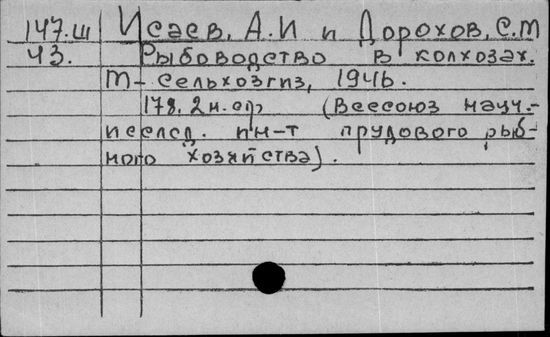 147.Ш Исаев, А.И и Дорохов, С.М
43. Рыбоводство в колхозах.
М- Сельхозгиз, 1946.
178, 2 н. ср (Всесоюз научн.-
исслед. ин-т прудового рыб-
ного хозяйства).